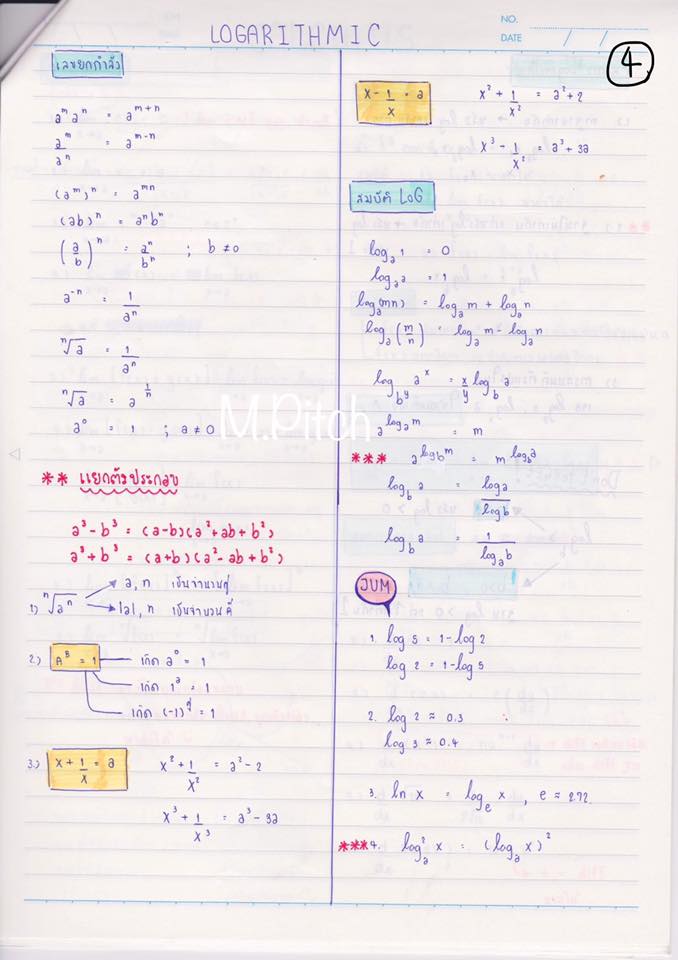 LOGARITHMIC
NO.
DATE / /
4
เลขยกกำลัง
aᵐaⁿ = aᵐ⁺ⁿ
aᵐ/aⁿ = aᵐ⁻ⁿ
(aᵐ)ⁿ = aᵐⁿ
(ab)ⁿ = aⁿbⁿ
(a/b)ⁿ = aⁿ/bⁿ ; b ≠ 0
a⁻ⁿ = 1/aⁿ
ⁿ√a = 1/aⁿ
ⁿ√a = a^(1/n)
a⁰ = 1 ; a ≠ 0
M.Pitch
** แยกตัวประกอบ
a³-b³ = (a-b)(a²+ab+b²)
a³+b³ = (a+b)(a²-ab+b²)
1) ⁿ√aⁿ
a, n เป็นจำนวนคู่
|a|, n เป็นจำนวนคี่
2.) Aᴮ = 1
เกิด a⁰ = 1
เกิด 1ᵃ = 1
เกิด (-1)^คู่ = 1
3.) x + 1/x = a
x² + 1/x² = a² - 2
x³ + 1/x³ = a³ - 3a
x - 1/x = a
x² + 1/x² = a² + 2
x³ - 1/x² = a³ + 3a
สมบัติ LOG
logₐ1 = 0
logₐa = 1
logₐ(mn) = logₐm + logₐn
logₐ(m/n) = logₐm - logₐn
log_(b^y) aˣ = x/y log_b a
a^(logₐm) = m
*** a^(log_b m) = m^(log_b a)
log_b a = log a/log b
log_b a = 1/logₐb
JUM
1. log 5 = 1 - log 2
log 2 = 1 - log 5
2. log 2 ≈ 0.3
log 3 ≈ 0.4
3. ln x = logₑ x , e ≈ 2.72
***4. logₐ² x = (logₐ x)²